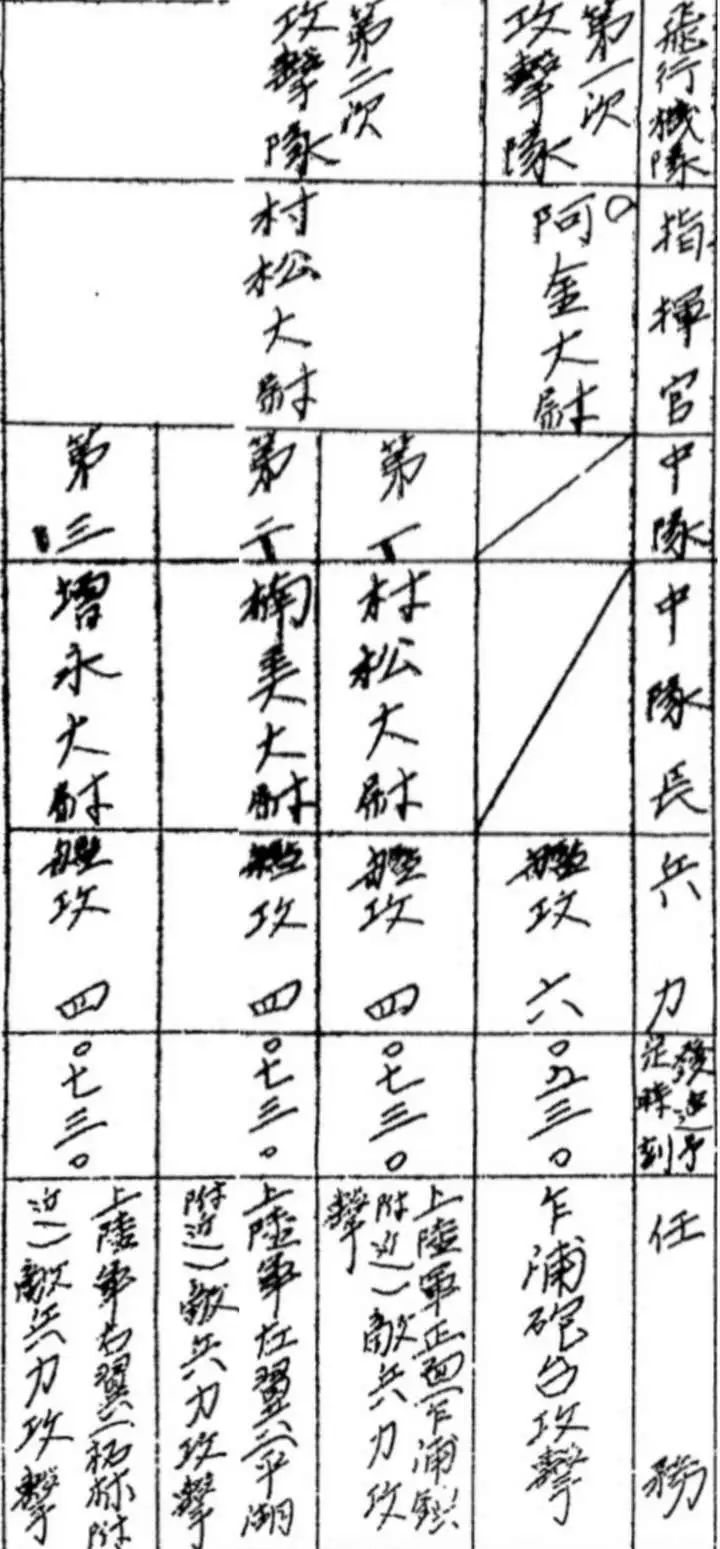 飛行機隊
指揮官
中隊
中隊長
兵力
發進予
定時刻
任務
第一次
攻撃隊
阿金大尉
艦攻 六
〇五三〇
乍浦砲台攻撃
第二次
攻撃隊
村松大尉
第一
村松大尉
艦攻 四
〇七三〇
上陸軍正面(乍浦鎮
附近)ノ敵兵力攻
撃
第二
楠美大尉
艦攻 四
〇七三〇
上陸軍左翼(平湖
附近)ノ敵兵力攻撃
第三
増永大尉
艦攻 四
〇七三〇
上陸軍右翼(柘林附
近)ノ敵兵力攻撃